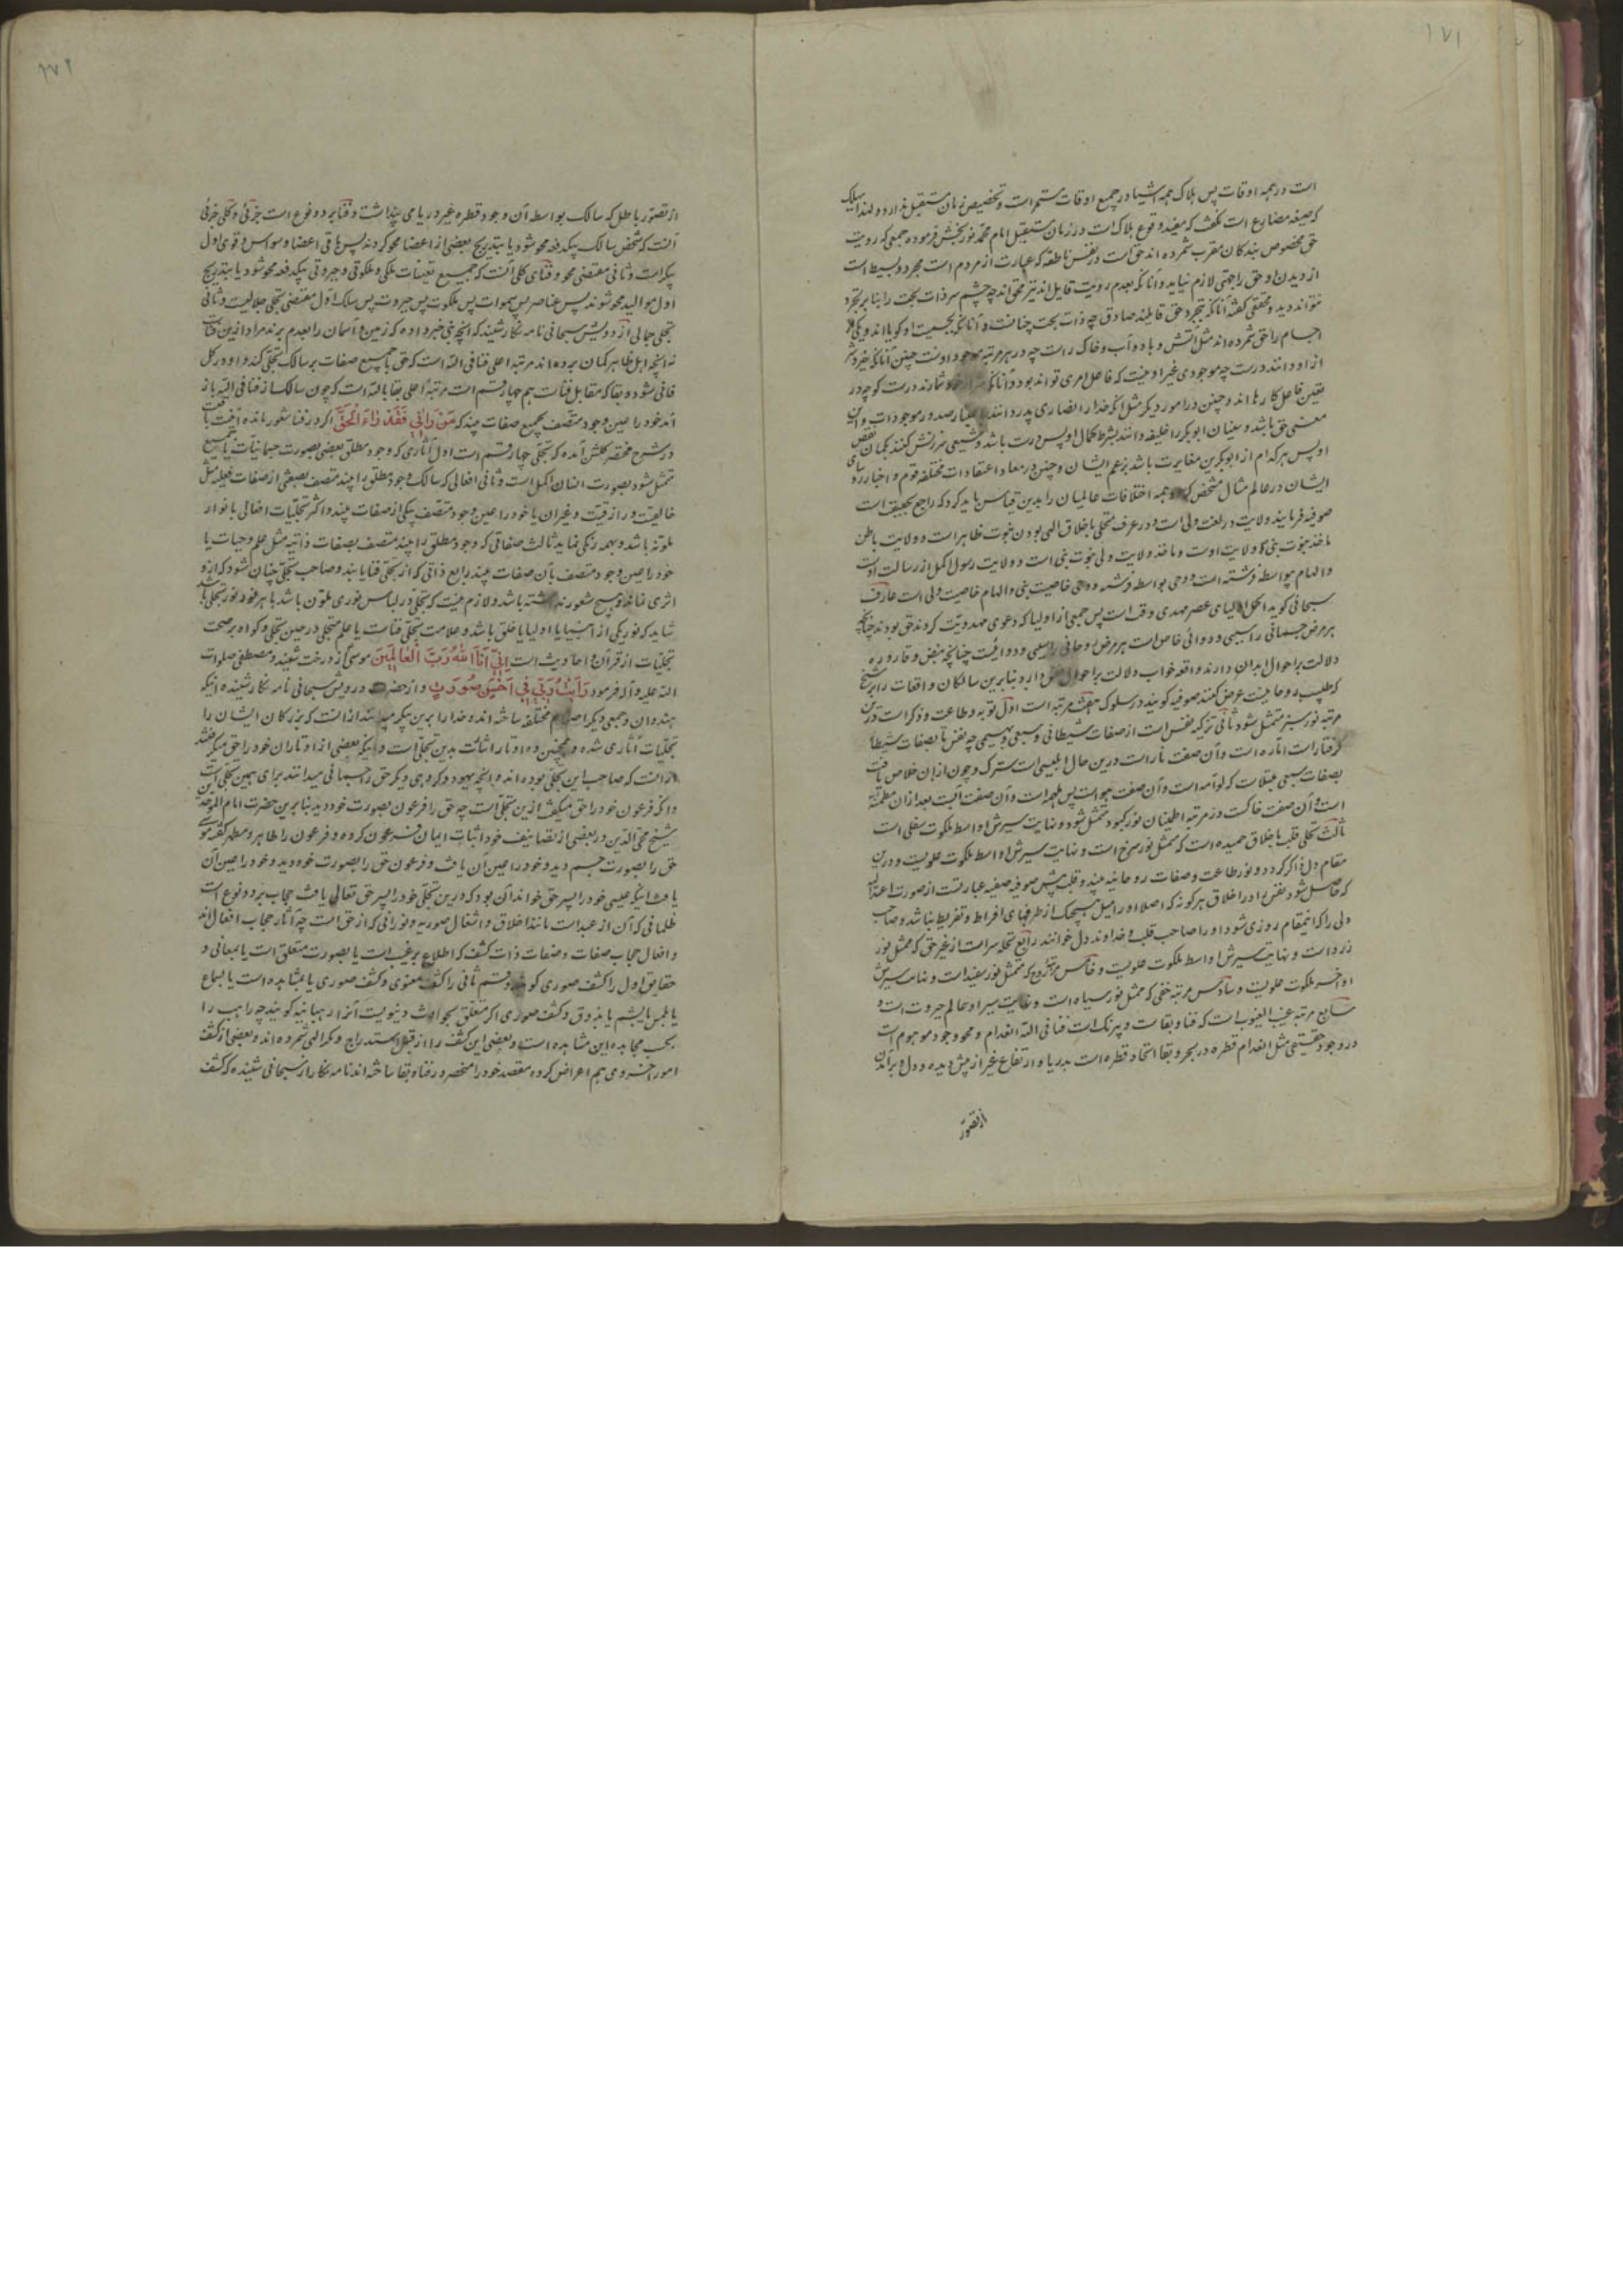 ۱۷۱
است در همه اوقات پس هلاک همه اشیا در جمیع اوقات مستمر است و تخصیص زمان مستقبل ندارد و لهذا یهلک
که صیغه مضارع است نگفت که مفید وقوع هلاک است در زمان مستقبل امام محمد نوربخش فرموده جمعی که رویت
حق مخصوص بندگان مقرب شمرده اند حق است در نفس ناطقه که عبارت از مردم است مجرد و بسیط است
از دیدن او حق را جهتی لازم نیاید و آنانکه بعدم رویت قایل اند نیز محق اند چه چشم سر ذات بحت را بنا بر تجرد
نتواند دید و محقق گفته آنانکه بتجرد حق قایلند صادق چه ذات بحت چنانست و آنانکه بجسمیت او گویا اند و یکی از
اجسام را حق شمرده اند مثل آتش و باد و آب و خاک راست چه در هر مرتبه موجود اوست چنین آنانکه خیر و شر
از او دانند درست چه موجودی غیر او نیست که فاعل امری تواند بود و آنانکه شمارند درست گو چه در
یقین فاعل کارها اند و چنین در امور دیگر مثل آنکه خدا را نصاری پدر دانند باعتبار صدور موجودات و این
معنی حق باشد و سنیان ابوبکر را خلیفه دانند بشرط کمال او پس درست باشد و شیعی سرزنش کنند بگمان نقص
او پس هر کدام از ابوبکرین مغایرت باشد بزعم ایشان و چنین در معاد اعتقادات مختلفه قوم و اخبار
ایشان در عالم مثال مشخص گردد همه اختلافات عالمیان را بدین قیاس باید کرد که راجع بحقیقت است
صوفیه فرمایند ولایت در لغت ولی است و در عرف متخلی باخلاق الهی بودن نبوت ظاهر است و ولایت باطن
ماخذ نبوت نبی ولایت اوست و ماخذ ولایت ولی نبوت نبی است و ولایت رسول اکمل از رسالت اوست
و الهام بواسطه فرشته است و وحی بواسطه فرشته و وحی خاصیت نبی و الهام خاصیت ولی است عارف
سبحانی گوید اکمل اولیای عصر مهدی وقت است پس جمعی از اولیا که دعوی مهدویت کردند حق بودند چنانچه
هر مرض جسمانی را سببی و دوائی خاص است هر مرض روحانی را سببی و دوائیست چنانچه نبض و قاروره
دلالت بر احوال ابدان دارند واقعه خواب دلالت بر احوال نفس دارد بنابرین سالکان واقعات را بر شیخ
که طبیب روحانیست عرض کنند صوفیه گویند در سلوک هفت مرتبه است اول توبه و طاعت و ذکر است درین
مرتبه نور سبز متمثل شود ثانی تزکیه نفس است از صفات شیطانی و سبعی و بهیمی چه نفس تا بصفات شیطانی
گرفتار است اماره است و آن صفت نار است درین حال ابلیسی است سترک و چون ازان خلاص یافت
بصفات سبعی مبتلاست که لوامه است و آن صفت هواست پس ملهمه است و آن صفت آبست بعد ازان مطمئنه
است و آن صفت خاکست در مرتبه اطمینان نور کبود متمثل شود و نهایت سیرش اواسط ملکوت سفلی است
ثالث تحلی قلب باخلاق حمیده است که ممثل بنور سرخ است و نهایت سیرش اواسط ملکوت علویست و درین
مقام دل ذاکر گردد و نور طاعت و صفات روحانیه بیند و قلب پیش صوفیه صفیه عبارتست از صورت اعتدالیه
که حاصل شود نفس را در اخلاق بهر گونه که اصلا او را میل بهیچیک از طرفهای افراط و تفریط نباشد و صاحب
دلی را که اینمقام روزی شود او را صاحب قلب و خداوند دل خوانند رابع تخلیه سر است از غیر حق که ممثل بنور
زرد است و نهایت سیرش اواسط ملکوت علویست و خامس مرتبه روح که متمثل بنور سفید است و نهایت سیرش
اواخر ملکوت علویست و سادس مرتبه خفی که ممثل بنور سیاه است و نهایت سیر او عالم جبروت است و
سابع مرتبه غیب الغیوب است که فنا و بقاست و بیرنگ است فنا فی الله انعدام و محو وجود موهوم است
در وجود حقیقی مثل انعدام قطره در بحر و بقا اتحاد قطره است بدریا و ارتفاع غیر از پیش دیده و دل
از تصور
۱۷۲
از تصور باطل که سالک بواسطه آن وجود قطره غیر دریا می پنداشت و فنا بر دو نوع است جزئی و کلی جزئی
آنست که شخص سالک بیکدفعه محو شود یا بتدریج بعضی از اعضا محو گردند پس باقی اعضا و حواس و قوی اول
سکر است و ثانی مقتضی محو و فنای کلی آنست که جمیع تعینات ملکی و ملکوتی و جبروتی بیکدفعه محو شود یا بتدریج
اول موالید محو شوند پس عناصر پس سموات پس ملکوت پس جبروت پس سالک اول مقتضی تجلی جلالیست و ثانی
تجلی جمالی از درویش سبحانی نامه نگار شنید که آنچه نبی خبر داده که زمین و آسمان را بعدم برند مراد ازین فناست
نه آنچه اهل ظاهر گمان برده اند مرتبه اعلی فنا فی الله است که حق بجمیع صفات بر سالک تجلی کند و او در کل
فانی شود و بقا که مقابل فناست هم چهار قسم است مرتبه اعلی بقا بالله است که چون سالک از فنا فی الله باز
آمد خود را عین وجود متصف بجمیع صفات بیند که مَنْ رَآنِی فَقَدْ رَاءَ الْحَقَّ اگر در فنا شعور مانده
در شرح مختصر گلشن آمده که تجلی چهار قسم است اول آثاری که وجود مطلق بعضی بصورت جسمانیات
متمثل شود بصورت انسان اکمل است و ثانی افعالی که سالک وجود مطلق را بیند متصف بصفتی از صفات فعلیه مثل
خالقیت و رازقیت و غیران یا خود را عین وجود متصف بیکی از صفات بیند و اکثر تجلیات افعالی بانوار
ملونه باشد و بهمه رنگی نماید ثالث صفاتی که وجود مطلق را بیند متصف بصفات ذاتیه مثل علم و حیات یا
خود را عین وجود متصف بآن صفات بیند رابع ذاتی که از تجلی فنا یابند و صاحب تجلی چنان شود که ازو
اثری نماند و هیچ شعور نداشته باشد و لازم نیست که تجلی در لباس نوری ملون باشد یا هر نور نور تجلی باشد
شاید که نور یکی از انبیا یا اولیا یا خلق باشد و علامت تجلی فناست یا علم متجلی در حین تجلی و گواه بر صحت
تجلیات از قرآن و احادیث است اِنِّی اَنَا اللهُ رَبُّ الْعَالَمِینَ موسی از درخت شنید و مصطفی صلوات
الله علیه و آله فرمود رَاَیْتُ رَبِّی فِی اَحْسَنِ صُورَةٍ و از حضرت درویش سبحانی نامه نگار شنیده اینکه
هندوان و جمعی دیگر اصنام مختلفه ساخته اند و خدا را برین پیکر میدانند ازانست که بزرگان ایشان را
تجلیات آثاری شده و همچنین ده اوتار اشارت بدین تجلی است و اینکه بعضی از اوتاران خود را حق میگرفتند
ازانست که صاحب این تجلی بوده اند و آنچه یهود و گروهی دیگر حق را جسمانی میدانند برای همین تجلی است
و آنکه فرعون خود را حق میگفت ازین تجلی است چه حق را فرعون بصورت خود دید بنابرین حضرت امام الموحدین
شیخ محی الدین در بعضی از تصانیف خود اثبات ایمان فرعون کرده و فرعون را طاهر و مطهر گفته موسی
حق را بصورت جسم دید و خود را عین آن نیافت و فرعون حق را بصورت خود دید و خود را عین آن
یافت اینکه عیسی خود را پسر حق خواند آن بود که درین تجلی خود را پسر حق تعالی یافت حجاب بر دو نوع است
ظلمانی که آن از عبد است مانند اخلاق و اشغال صوریه و نورانی که از حق است چه آثار حجاب افعال اند
و افعال حجاب صفات و صفات ذات کشف که اطلاع بر غیب است یا بصورت متعلق است یا بمعانی و
حقایق اول را کشف صوری گویند و قسم ثانی را کشف معنوی و کشف صوری یا بمشاهده است یا بسماع
یا بلمس یا بشم یا بذوق و کشف صوری اگر متعلق بحوادث دنیویست آنرا رهبانیه گویند چه راهب را
بحسب مجاهده این مشاهده است و بعضی این کشف را از قبیل استدراج و مکر الهی شمرده اند و بعضی از کشف
امور اخروی هم اعراض کرده مقصد خود را منحصر در فنا و بقا ساخته اند نامه نگار از سبحانی شنیده که کشف